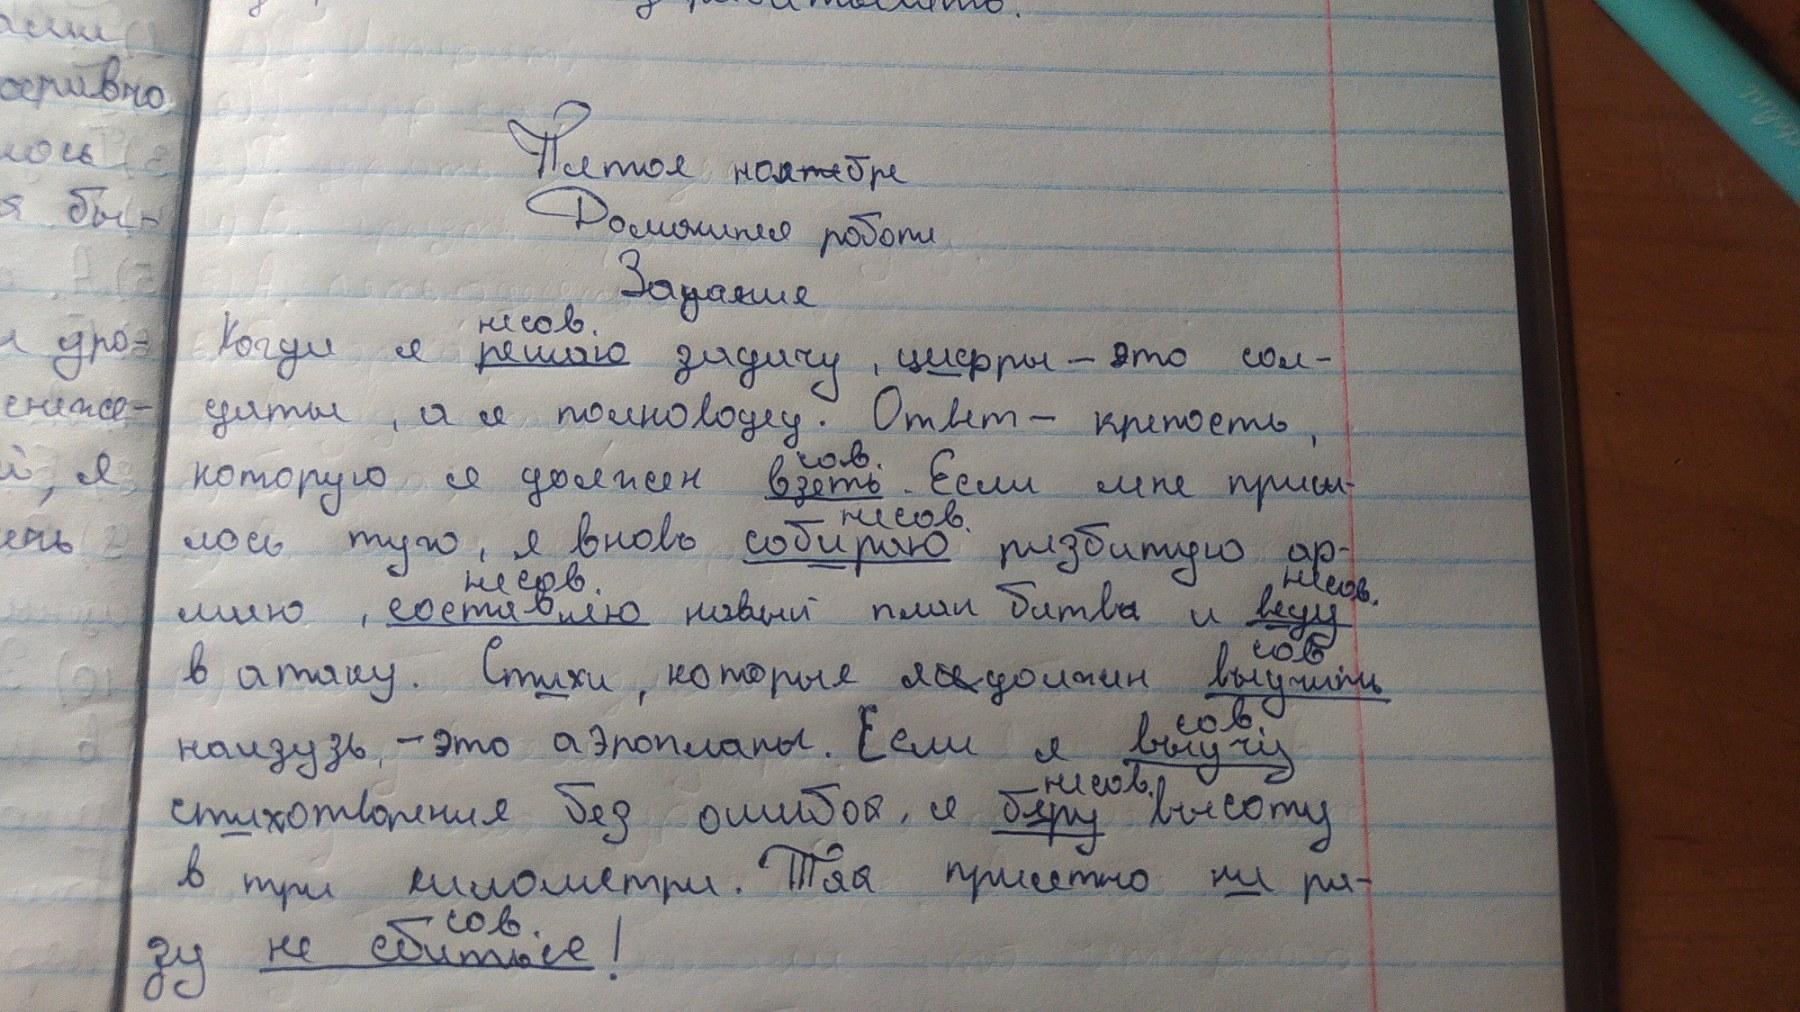 Пятое ноября
Домашняя работа
Задание
несов.
Когда я решаю задачу, цифры – это сол-
даты, а я полководец. Ответ – крепость,
сов.
которую я должен взять. Если мне приш-
несов.
лось туго, я вновь собираю разбитую ар-
несов. несов.
мию, составляю новый план битвы и веду
сов
в атаку. Стихи, которые я должен выучить
сов.
наизусь, – это аэропланы. Если я выучу
несов.
стихотворения без ошибок, я беру высоту
в три километра. Так приятно ни ра-
сов.
зу не сбиться!
ации
ось
я был
и уро-
й, я